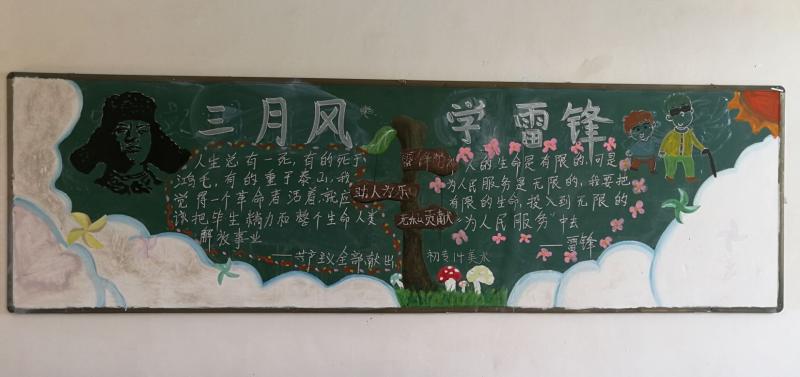 三月风 学雷锋
人生总有一死，有的死于
鸿毛，有的重于泰山，我
觉得一个革命者活着，就应
该把毕生精力和整个生命人类
解放事业
——共产主义全部献出
助人为乐
无私贡献
人的生命是有限的，可是
为人民服务是无限的，我要把
有限的生命，投入到无限的
"为人民服务"中去
——雷锋